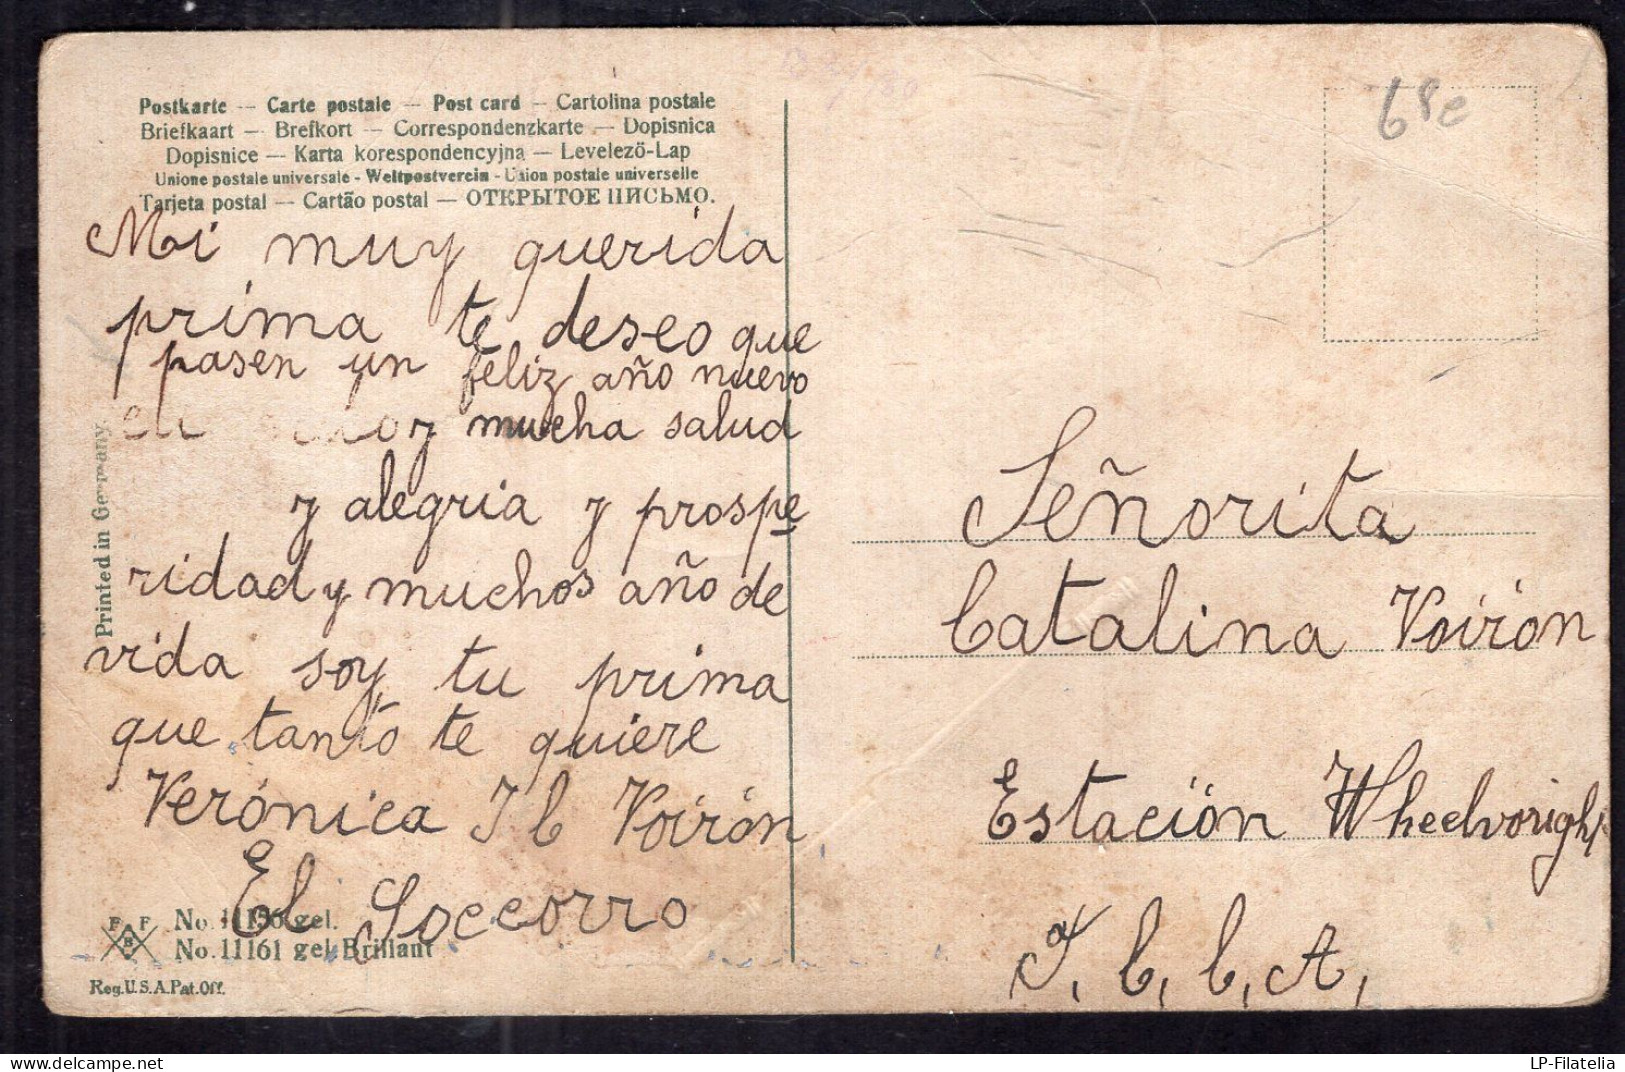 Postkarte – Carte postale – Post card – Cartolina postale
Briefkaart – Brefkort – Correspondenzkarte – Dopisnica
Dopisnice – Karta korespondencyjna – Levelezö-Lap
Unione postale universale - Weltpostverein - Union postale universelle
Tarjeta postal – Cartão postal – ОТКРЫТОЕ ПИСЬМО.
Mi muy querida
prima te deseo que
pasen un feliz año nuevo
y mucha salud
y alegria y prospe
ridad y muchos año de
vida soy tu prima
que tanto te quiere
Verónica J b Voirón
El Soccorro
Printed in Germany.
F F
B
No. 11156 gel.
No. 11161 gel. Brillant
Reg. U.S.A. Pat. Off.
Señorita
Catalina Voirón
Estación Wheelvoright
F, C, C, A,
LP-Filatelia